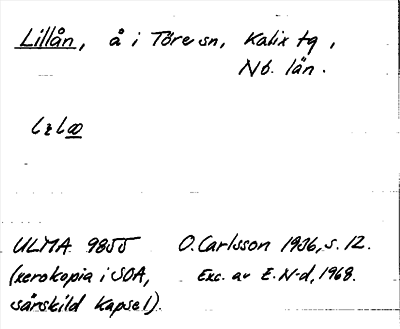 Lillån, å i Töre sn, Kalix tg,
Nb. län.
ULMA 9855 O. Carlsson 1936, s. 12.
(xerokopia i SOA, Exc. av E. N-d, 1968.
särskild kapsel).